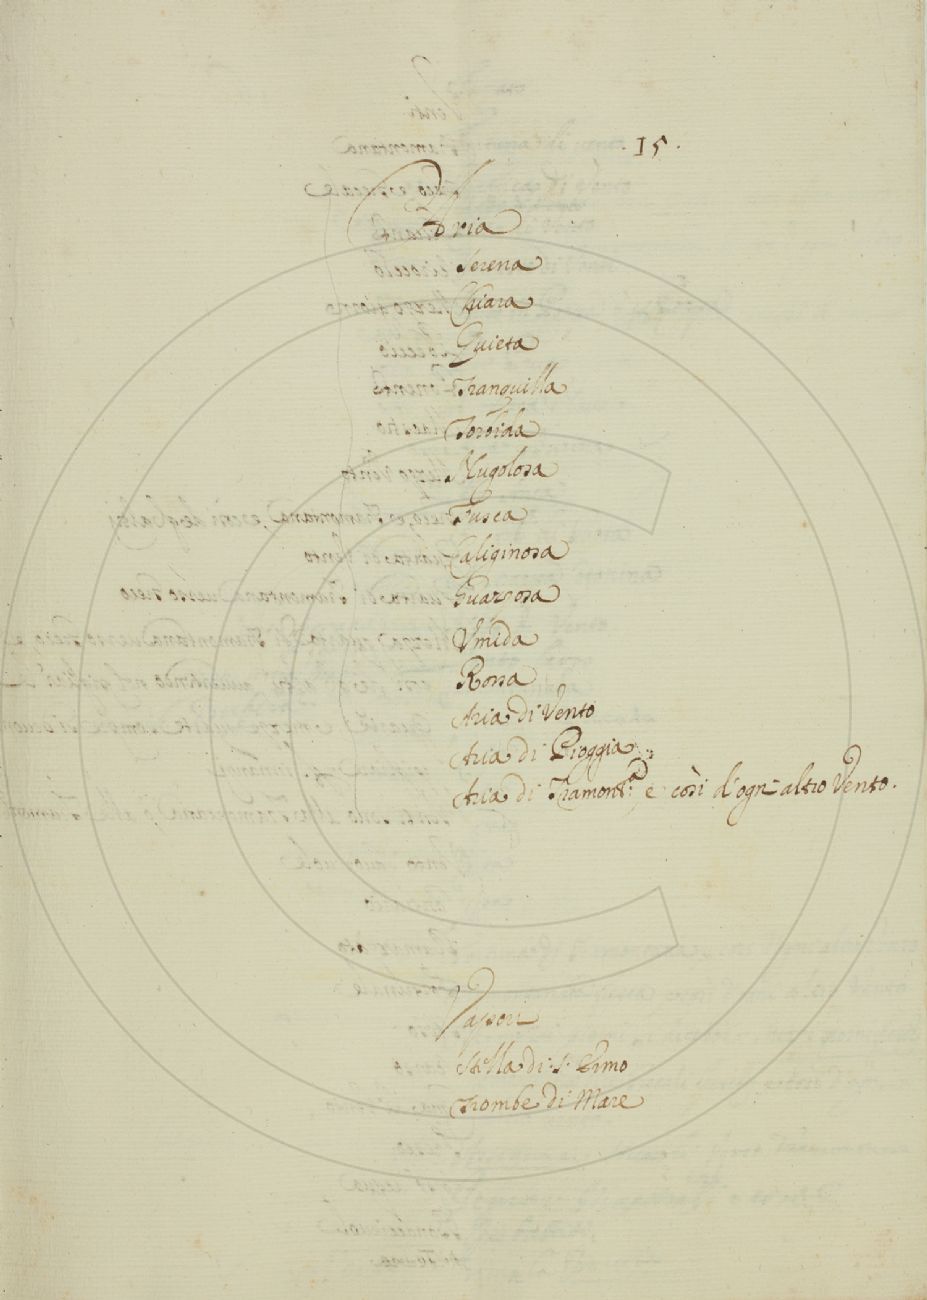 . 15 .
Aria
Serena
Chiara
Quieta
Tranquilla
Torbida
Nugolosa
Fusca
Caliginosa
Guazzosa
Vmida
Rossa
Aria di Vento
Aria di Pioggia
Aria di Tramont.ª e così d'ogn' altro Vento.
Vapori
Stella di S. Elmo
Trombe di Mare